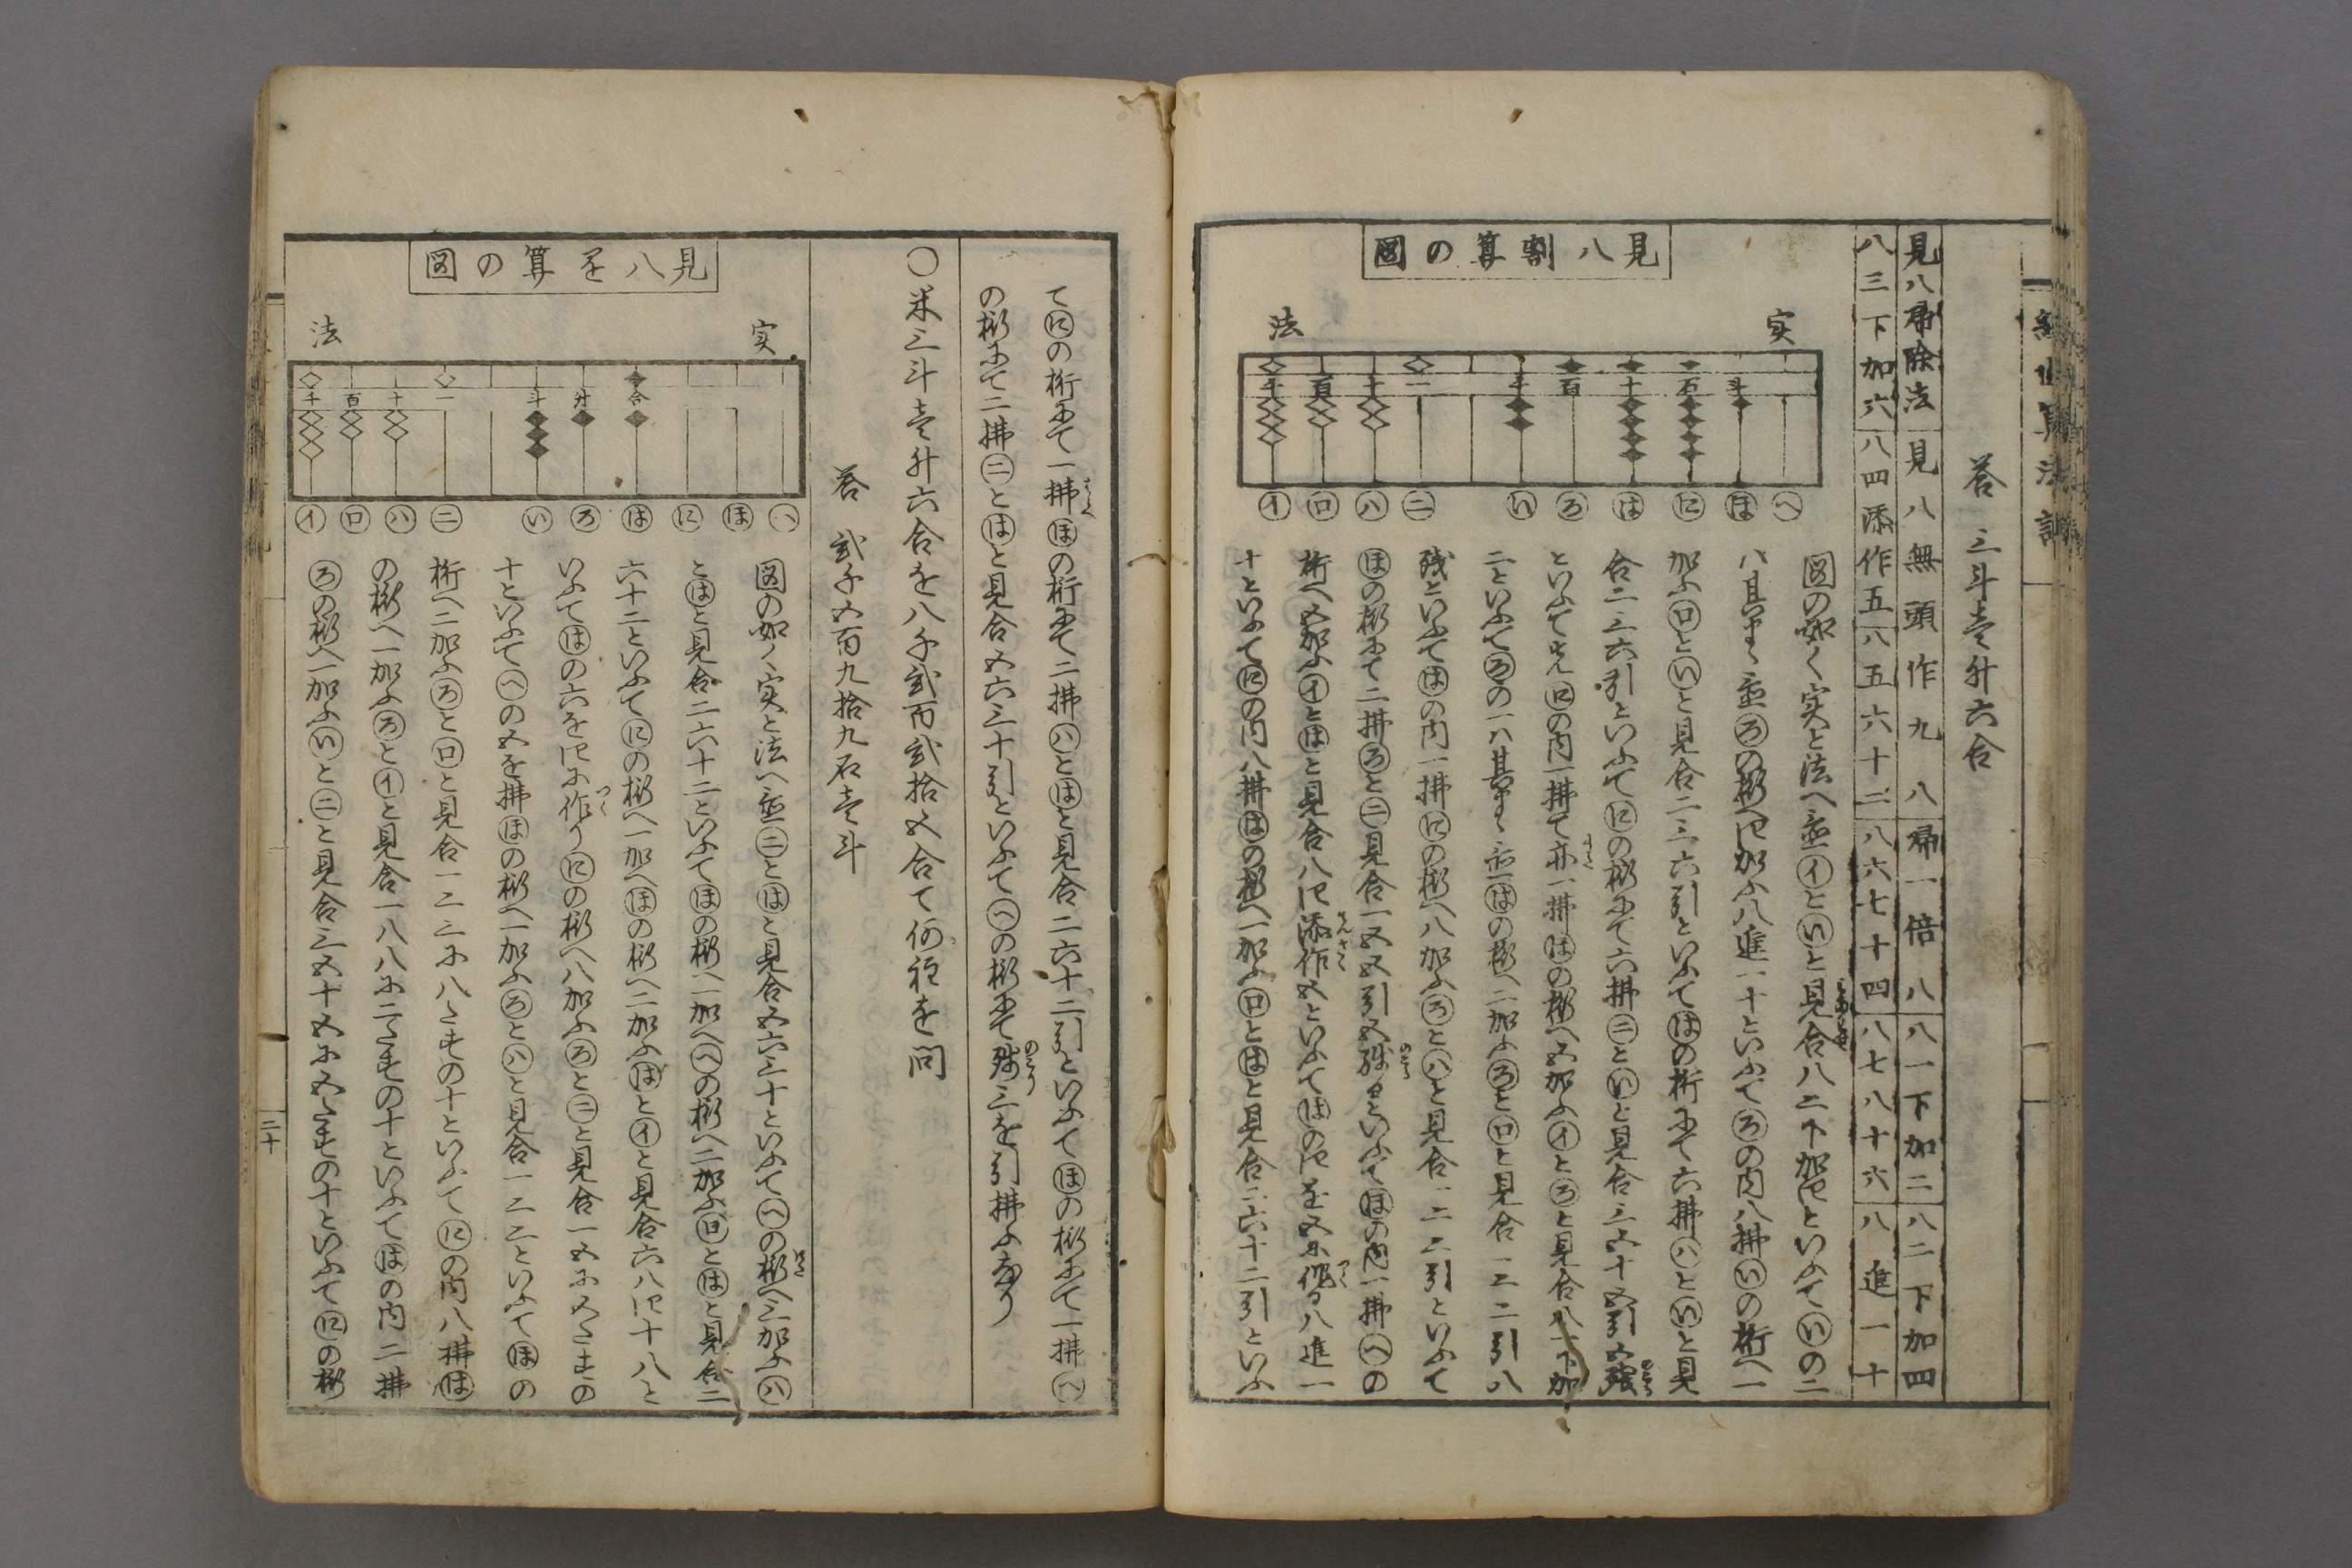 答　三斗壱升六合
見八帰除法　見八無頭作九　八帰一倍八　八一下加二　八二下加四
八三下加六　八四添作五　八五六十二　八六七十四　八七八十六　八進一十
見八割算の図
実
法
千百十一千百十石斗
イロハニいろはにほへ
図の如く実と法へ置イといと見合八二下加四といふていの二
ハ其まゝ置ろの桁へ四加ふ八進一十といふてろの内八払いの桁へ一
加ふロといと見合二三六引といふてはの桁にて六払ハといと見
合二三六引といふてにの桁にて六払ニといと見合三五十五引五残
といふて先にの内一払て亦一払ほの桁へ五加ふイとろと見合八一下加
二といふてろの一ハ其まゝ置はの桁へ二加ふろとロと見合一二二引八
残といふてはの内一払にの桁へ八加ふろとハと見合一二二引といふて
ほの桁にて二払ろとニ見合一五五引五残るといふてほの内一払への
桁へ五加ふイとはと見合八四添作五といふてはの四を五に作る八進一
十といふてにの内八払はの桁へ一加ふロとはと見合二六十二引といふ
てにの桁にて一払ほの桁にて二払ハとはと見合二六十二引といふてほの桁にて一払へ
の桁にて二払ニとはと見合五六三十引といふてへの桁にて残三を引払ふなり
○米三斗壱升六合を八千弐百弐拾五合て何程を問
答　弐千五百九拾九石壱斗
見八を算の図
実
法
千百十一斗升合
イロハニいろはにほへ
図の如く実と法へ置ニとはと見合五六三十といふてへの桁へ三加ふハ
とはと見合二六十二といふてほの桁へ一加へへの桁へ二加ふロとはと見合二
六十二といふてにの桁へ一加へほの桁へ二加ふはとイと見合六八四十八と
いふてはの六を四に作りにの桁へ八加ふろとニと見合一五に五たすの
十といふてへの五を払ほの桁へ一加ふろとハと見合一二二といふてほの
桁へ二加ふろとロと見合一二二に八たすの十といふてにの内八払は
の桁へ一加ふろとイと見合一八八に二たすの十といふてほの内二払
ろの桁へ一加ふいとニと見合三五十五に五たすの十といふてにの桁
二十